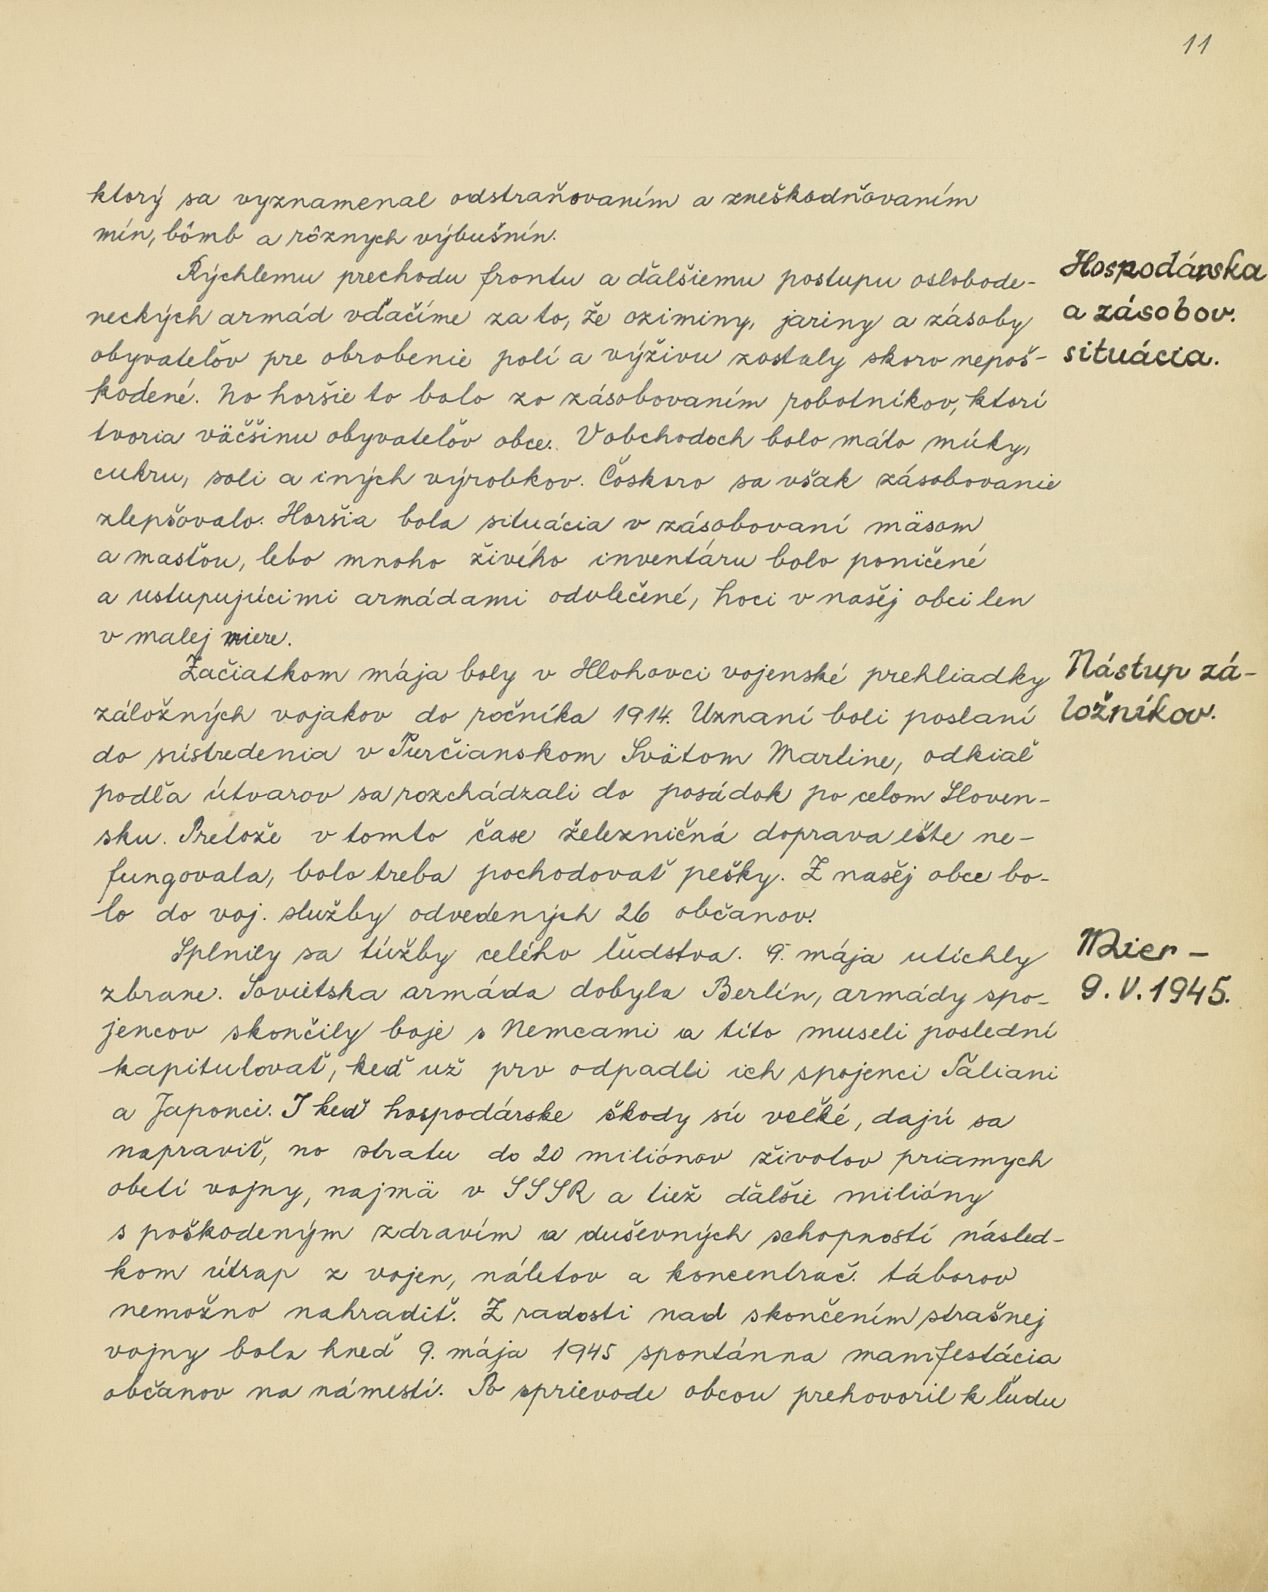 11
ktorý sa vyznamenal odstraňovaním a zneškodňovaním
mín, bômb a rôznych výbušnín.
Rýchlemu prechodu frontu a ďalšiemu postupu oslobode-
neckých armád vďačíme za to, že oziminy, jariny a zásoby
obyvateľov pre obrobenie polí a výživu zostaly skoro nepoš-
kodené. No horšie to bolo zo zásobovaním robotníkov, ktorí
tvoria väčšinu obyvateľov obce. V obchodoch bolo málo múky,
cukru, soli a iných výrobkov. Čoskoro sa však zásobovanie
zlepšovalo. Horšia bola situácia v zásobovaní mäsom
a masťou, lebo mnoho živého inventáru bolo poničené
a ustupujúcimi armádami odvlečené, hoci v našej obci len
v malej miere.
Hospodárska
a zásobov.
situácia.
Začiatkom mája boly v Hlohovci vojenské prehliadky
záložných vojakov do ročníka 1914. Uznaní boli poslaní
do sústredenia v Turčianskom Svätom Martine, odkiaľ
podľa útvarov sa rozchádzali do posádok po celom Sloven-
sku. Pretože v tomto čase železničná doprava ešte ne-
fungovala, bolo treba pochodovať pešky. Z našej obce bo-
lo do voj. služby odvedených 26 občanov.
Nástup zá-
ložníkov.
Splnily sa túžby celého ľudstva. 9. mája utíchly
zbrane. Sovietska armáda dobyla Berlín, armády spo-
jencov skončily boje s Nemcami a títo museli poslední
kapitulovať, keď už prv odpadli ich spojenci Taliani
a Japonci. I keď hospodárske škody sú veľké, dajú sa
napraviť, no stratu do 20 miliónov životov priamych
obetí vojny, najmä v SSSR a tiež ďalšie milióny
s poškodeným zdravím a duševných schopností násled-
kom útrap z vojen, náletov a koncentrač. táborov
nemožno nahradiť. Z radosti nad skončením strašnej
vojny bola hneď 9. mája 1945 spontánna manifestácia
občanov na námestí. Po sprievode obcou prehovoril k ľudu
Mier –
9. V. 1945.